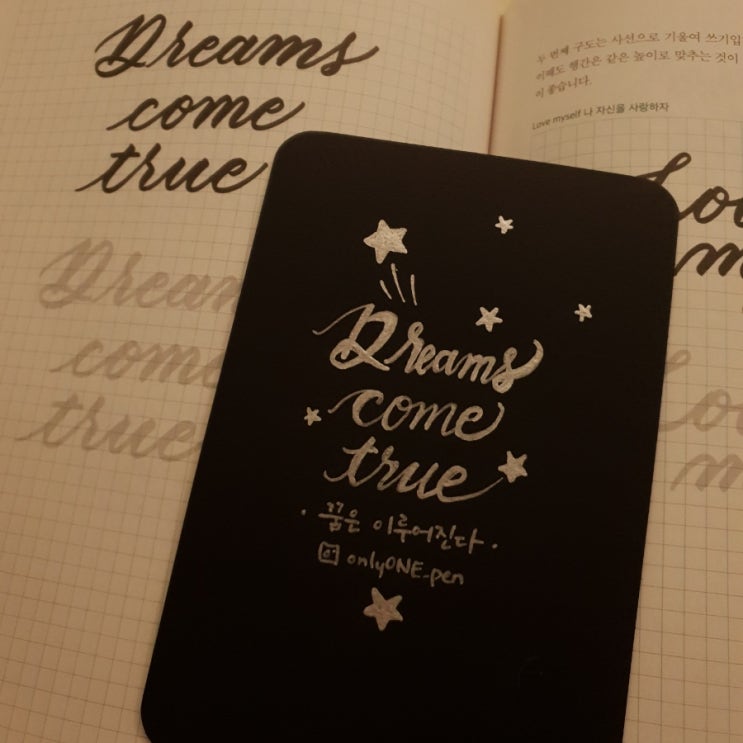 Dreams
come
true
Dream
come
true
두 번째 구도는 사선으로 기울여 쓰기입
이때도 행간은 같은 높이로 맞추는 것이
이 좋습니다.
Love myself 나 자신을 사랑하자
Lo
m
Lo
m
Dreams
come
true
· 꿈은 이루어진다 ·
onlyONE_pen